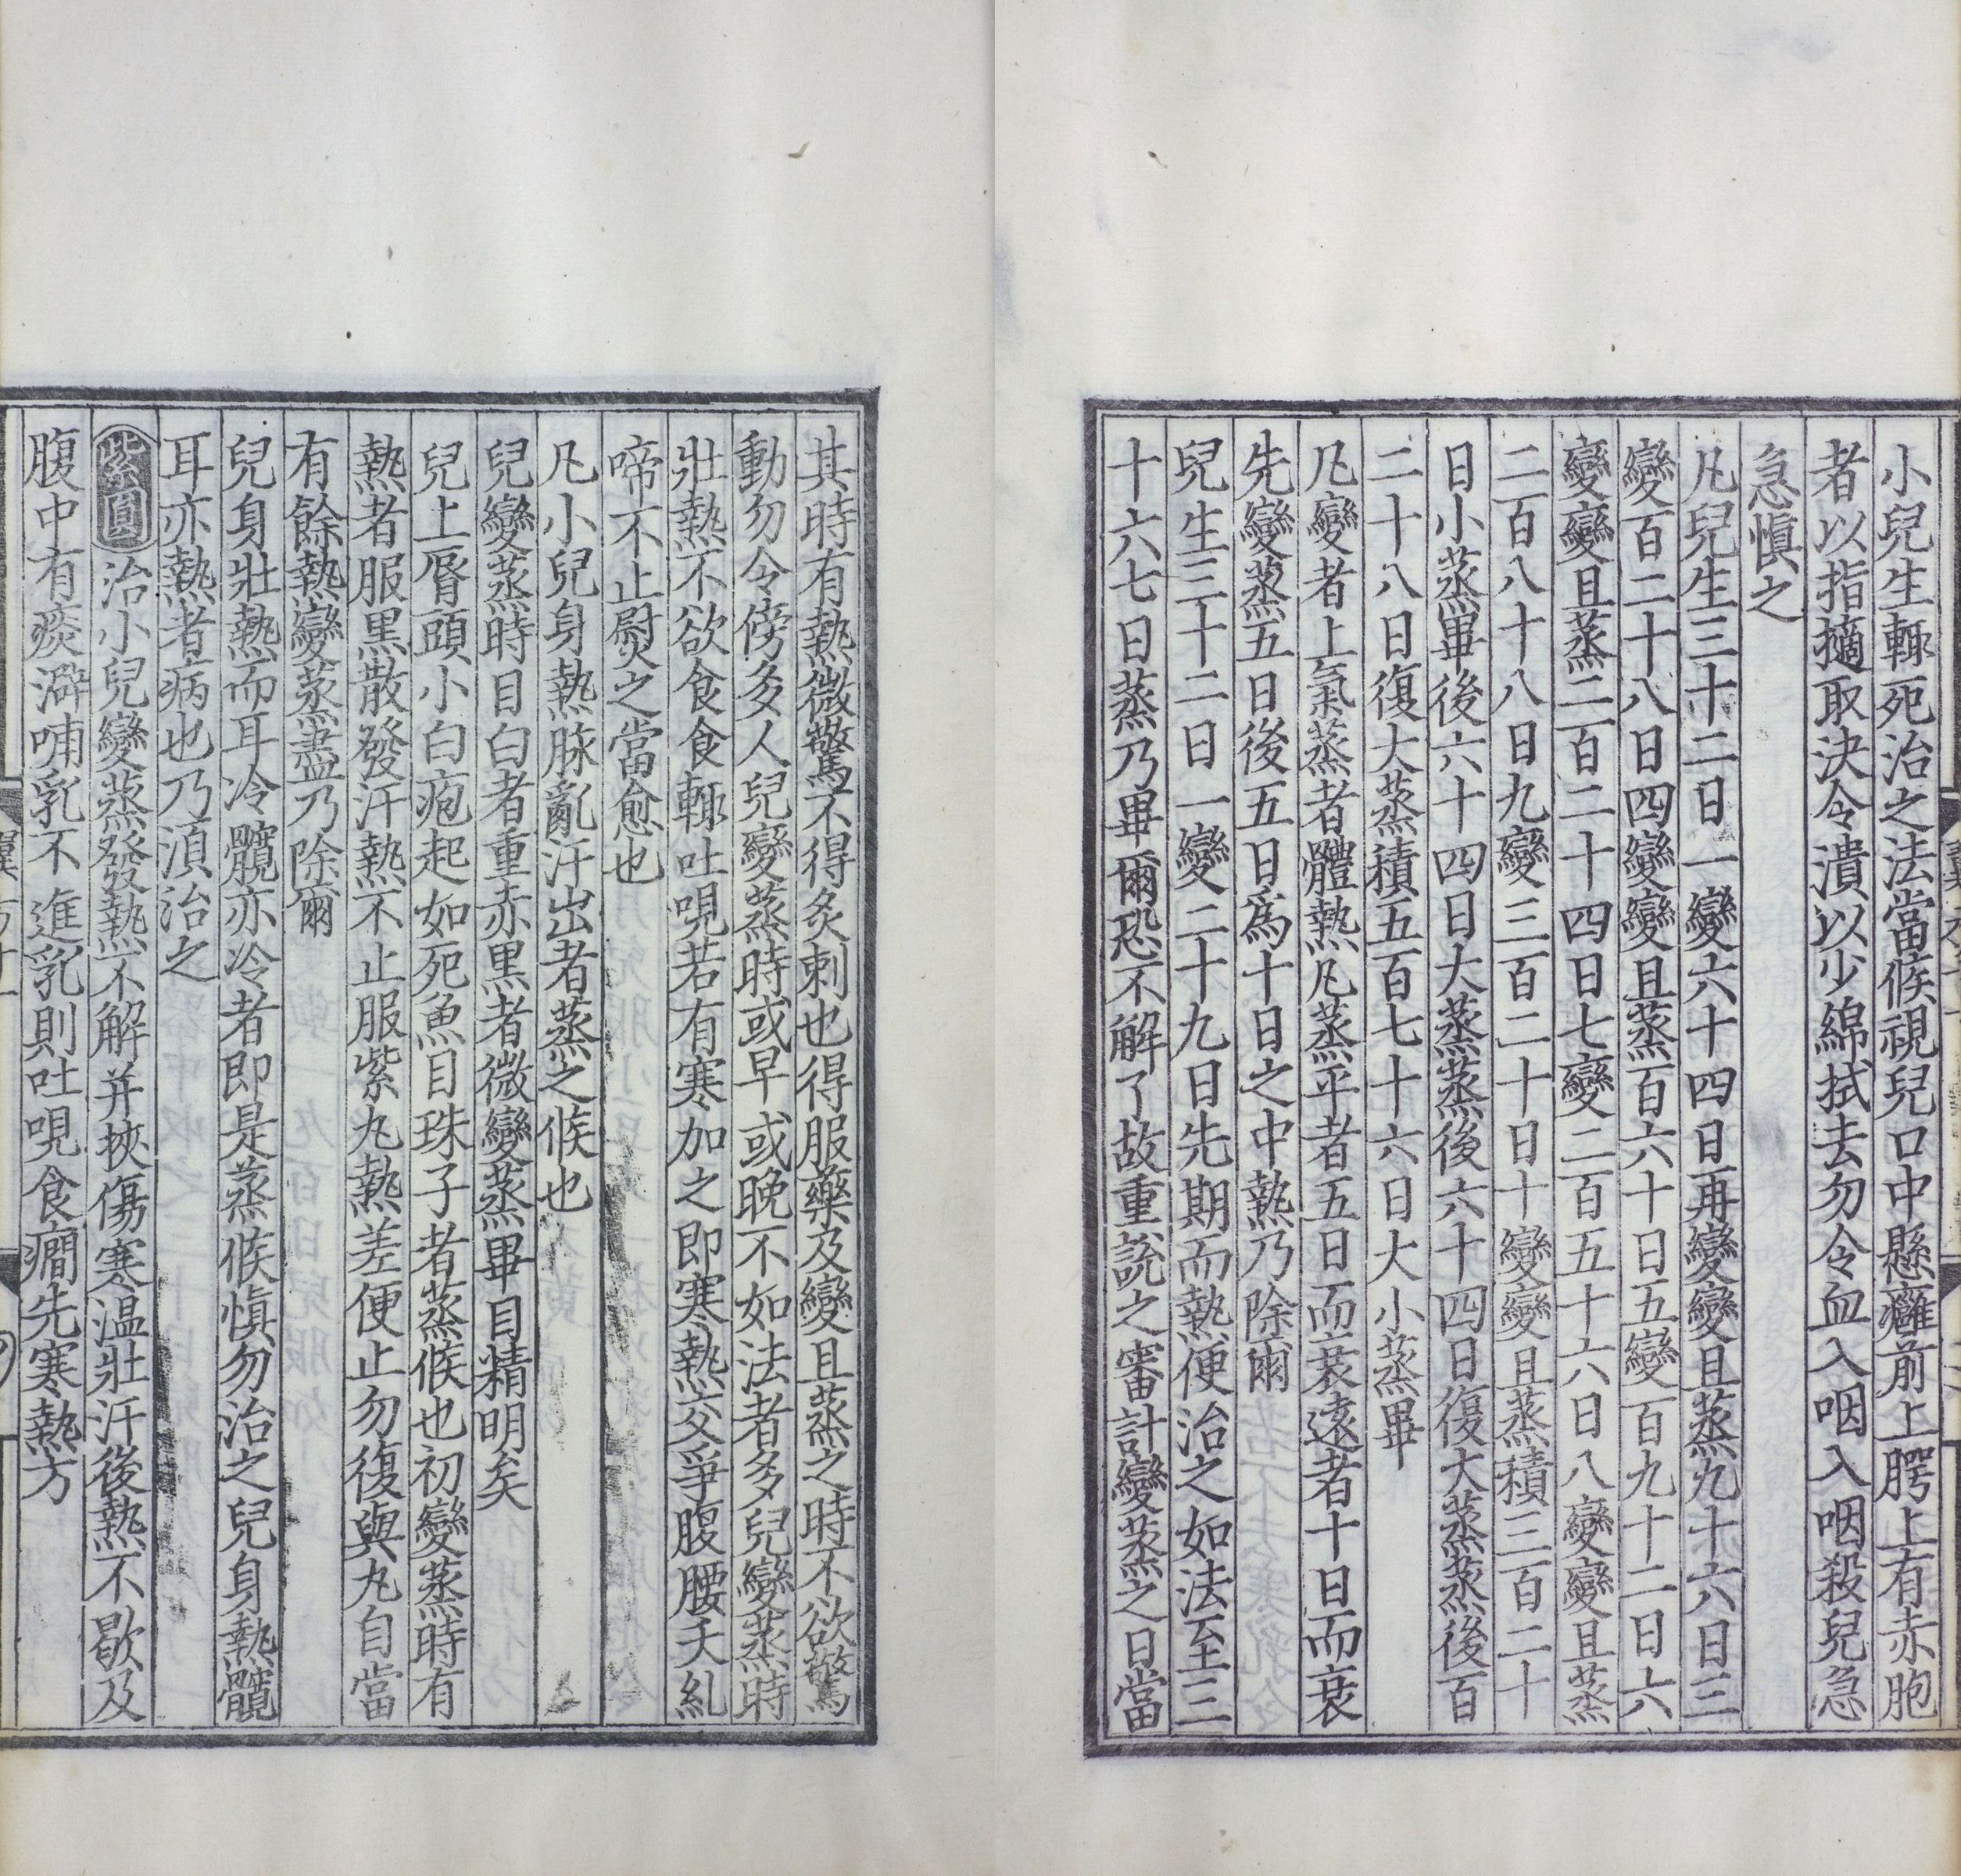 小兒生輙死治之法當候視兒口中懸癰前上腭上有赤胞
者以指擿取決令潰以少綿拭去勿令血入咽入咽殺兒急
急慎之
凡兒生三十二日一變六十四日再變變且蒸九十六日三
變百二十八日四變變且蒸百六十日五變百九十二日六
變變且蒸二百二十四日七變二百五十六日八變變且蒸
二百八十八日九變三百二十日十變變且蒸積三百二十
日小蒸畢後六十四日大蒸蒸後六十四日復大蒸蒸後百
二十八日復大蒸積五百七十六日大小蒸畢
凡變者上氣蒸者體熱凡蒸平者五日而衰遠者十日而衰
先變蒸五日後五日爲十日之中熱乃除爾
兒生三十二日一變二十九日先期而熱便治之如法至三
十六七日蒸乃畢爾恐不解了故重說之審計變蒸之日當
其時有熱微驚不得灸刺也得服藥及變且蒸之時不欲驚
動勿令傍多人兒變蒸時或早或晚不如法者多兒變蒸時
壯熱不欲食食輙吐哯若有寒加之即寒熱交爭腹腰夭糺
啼不止熨之當愈也
凡小兒身熱脉亂汗出者蒸之候也
兒變蒸時目白者重赤黑者微變蒸畢目精明矣
兒上脣頭小白疱起如死魚目珠子者蒸候也初變蒸時有
熱者服黑散發汗熱不止服紫丸熱差便止勿復與丸自當
有餘熱變蒸盡乃除爾
兒身壯熱而耳冷髖亦冷者即是蒸候慎勿治之兒身熱髖
耳亦熱者病也乃湏治之
紫圓治小兒變蒸發熱不解并挾傷寒温壯汗後熱不歇及
腹中有痰澼哺乳不進乳則吐哯食癇先寒熱方